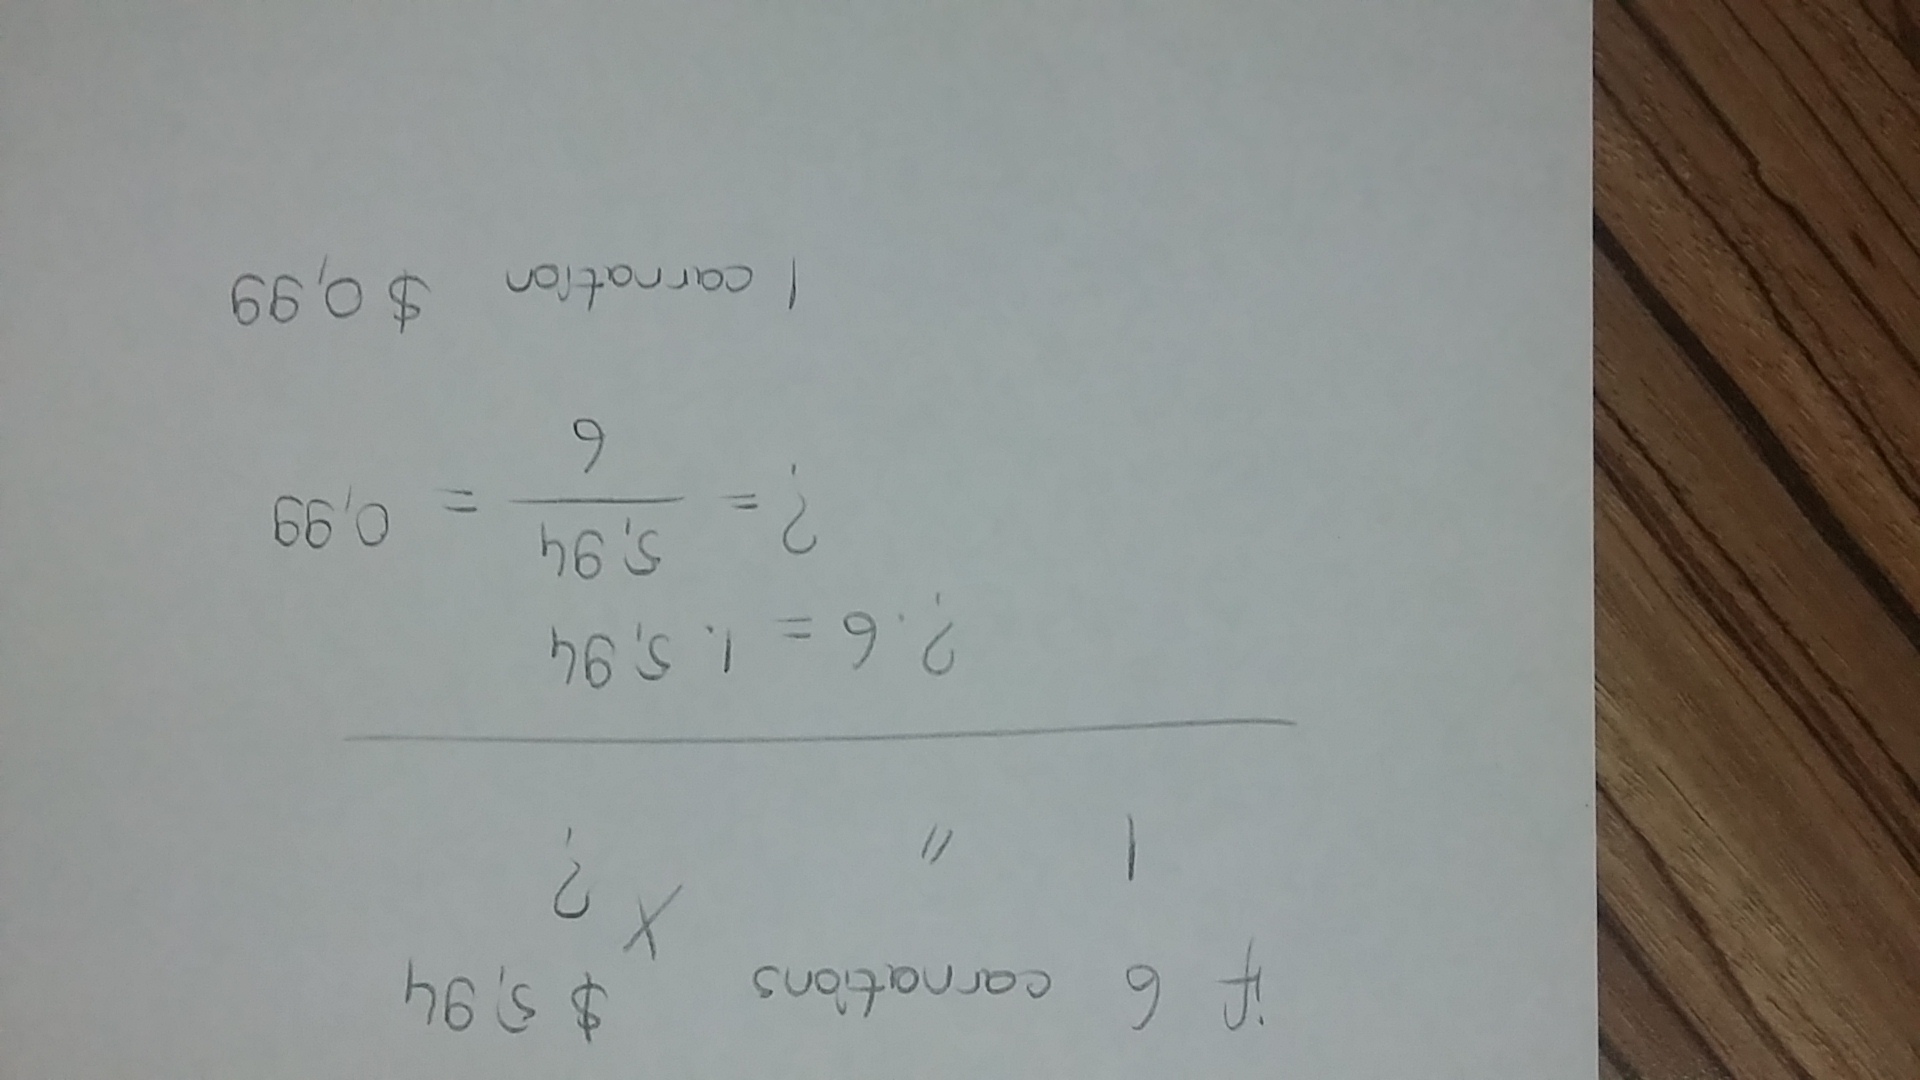 if 6 carnations $ 5,94
1 " X ?
?. 6 = 1. 5,94
? = 5,94 / 6 = 0,99
1 carnation $ 0,99